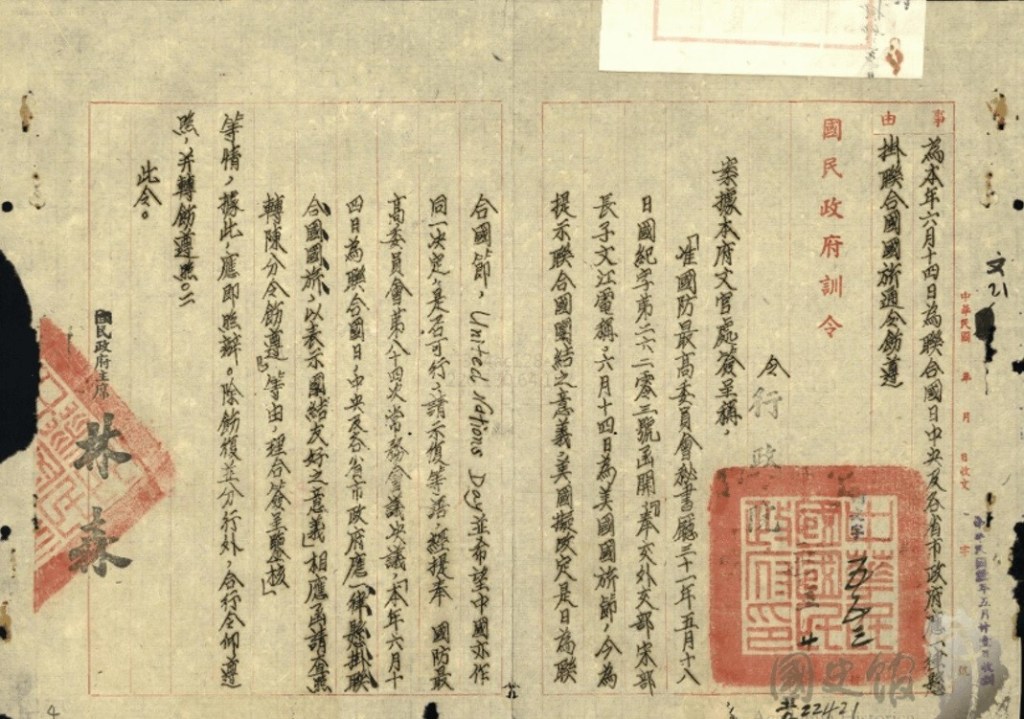 事由
為本年六月十四日為聯合國日中央及各省市政府應一律懸
掛聯合國國旂通令飭遵
國民政府訓令
令行政院
案據本府文官處簽呈稱，
「准國防最高委員會秘書廳三十一年五月十八
日國紀字第二六二零三號函開，『奉交外交部宋部
長子文江電稱，六月十四日為美國國旂節，今為
提示聯合國團結之意義，美國擬改定是日為聯
合國節，United Nations Day並希望中國亦作
同一決定，是否可行，請示復等語，經提奉 國防最
高委員會第八十四次常務會議決議，「本年六月十
四日為聯合國日，中央及各省市政府應一律懸掛聯
合國國旂，以表示團結友好之意義」相應函請查照
轉陳分令飭遵』等由，理合簽呈鑒核」
等情，據此，應即照辦。除飭復並分行外，合行令仰遵
照，并轉飭遵照。
此令。
國民政府主席
林森
中華民國 年 月 日收文 字 號
中華民國國民政府印
22421
國史館